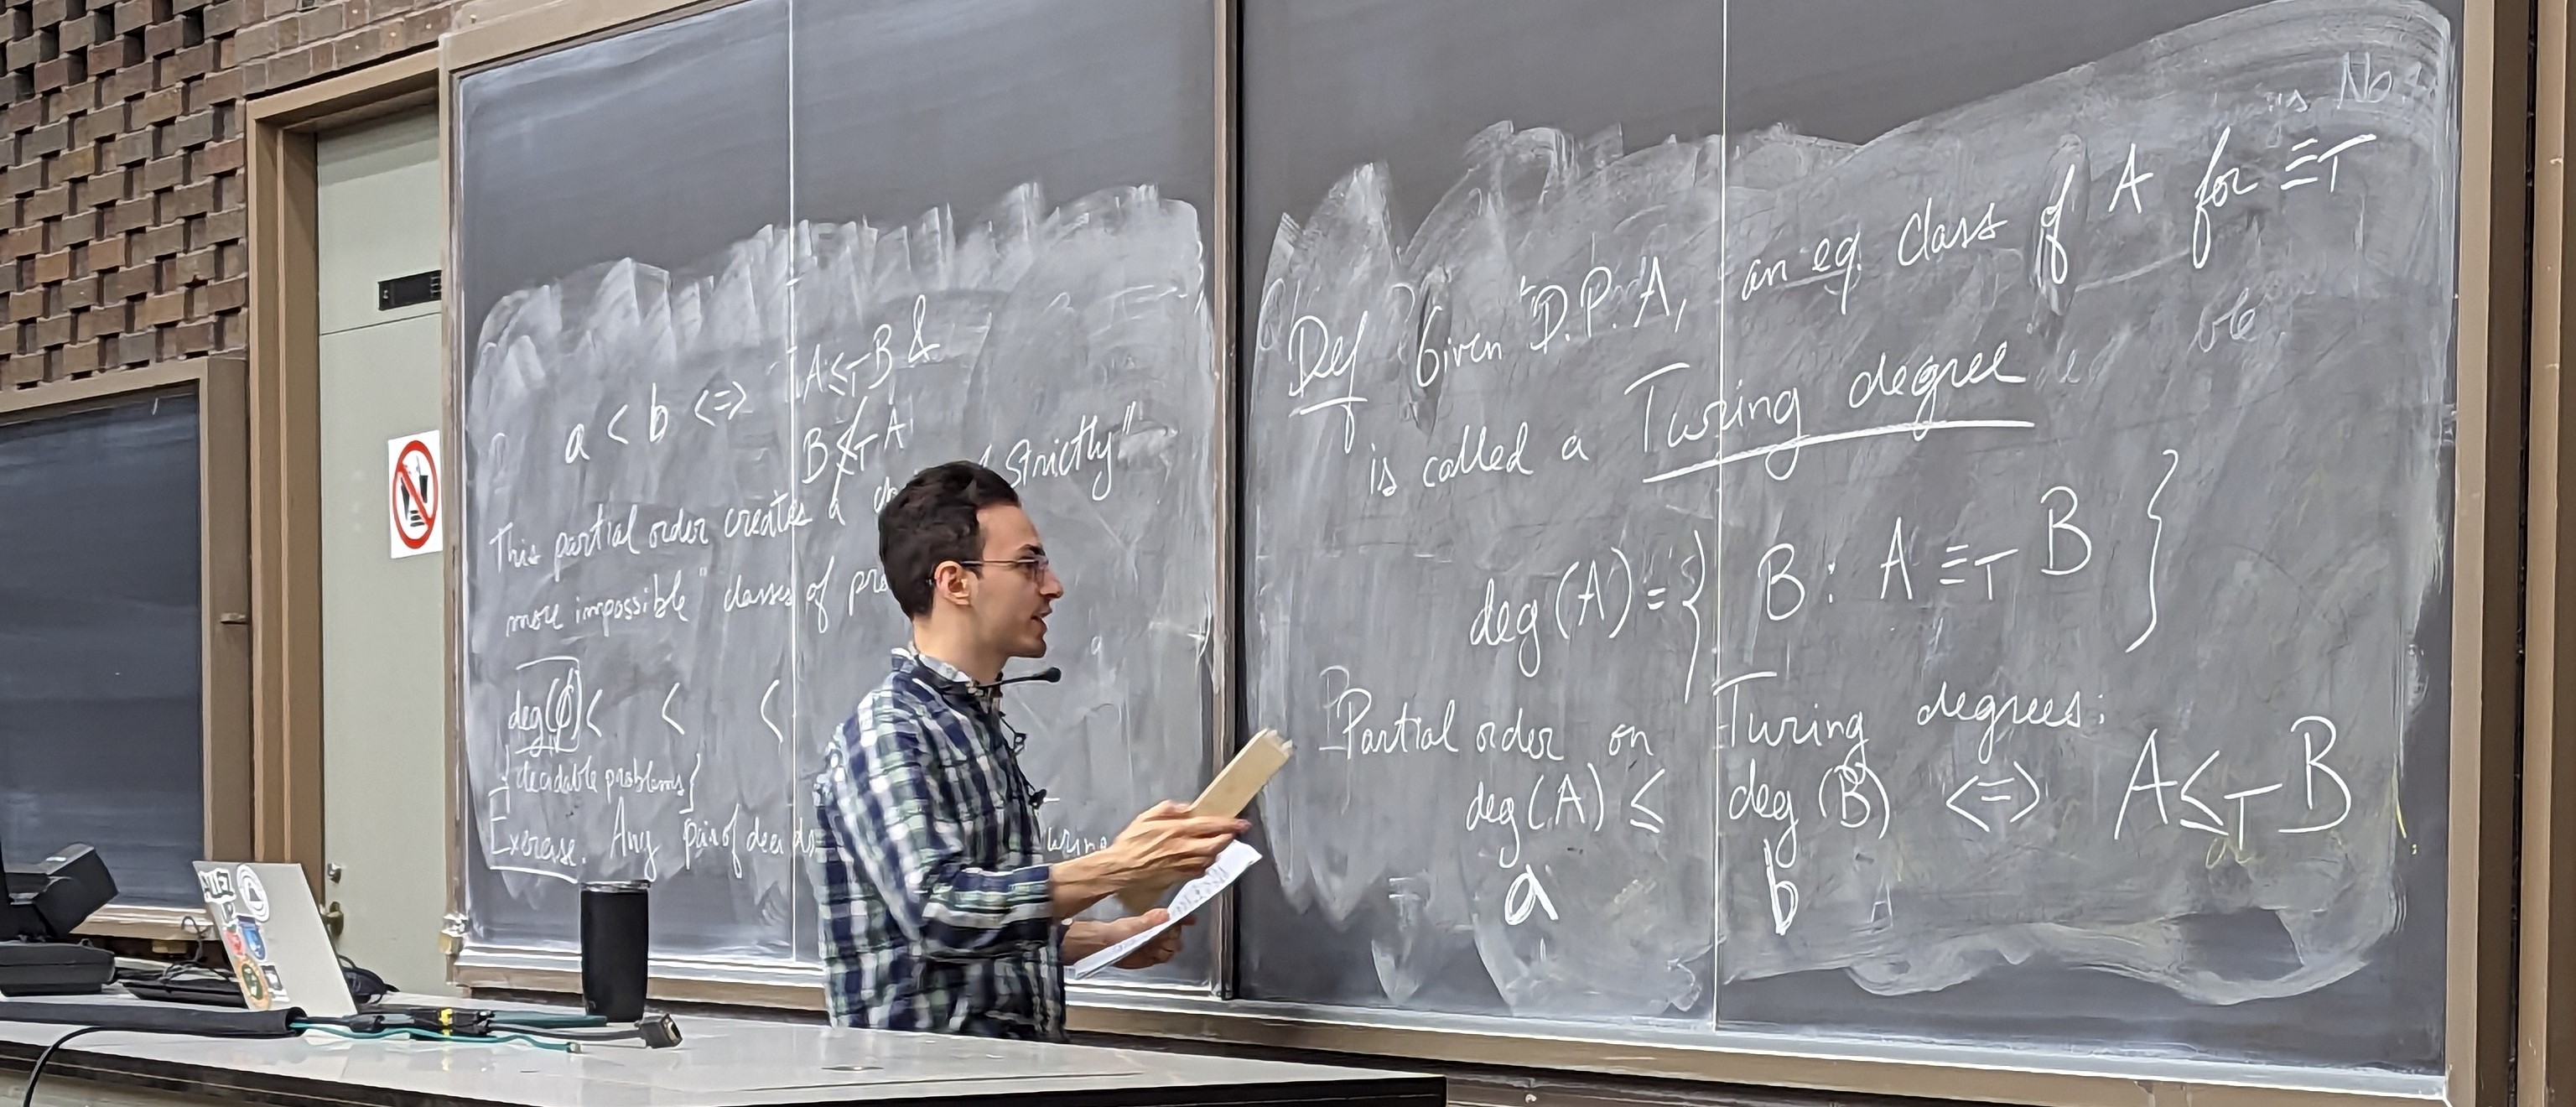 a < b <=> A ≤_T B &
B ≰_T A
This partial order creates a strictly"
more impossible" classes of
deg(∅) < < <
{decidable problems}
Exercise. Any pair of
Def Given D.P. A, an eq. class of A for ≡_T
is called a Turing degree
deg(A) = { B : A ≡_T B }
Partial order on Turing degrees:
deg(A) ≤ deg(B) <=> A ≤_T B
a b